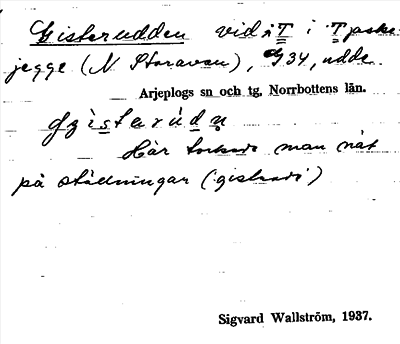 Gisterudden vid T i Tjaske-
jegge (N Storavan), G 34, udde.
Arjeplogs sn och tg, Norrbottens län.
Här torkade man nät
på ställningar (gistnade)
Sigvard Wallström, 1937.